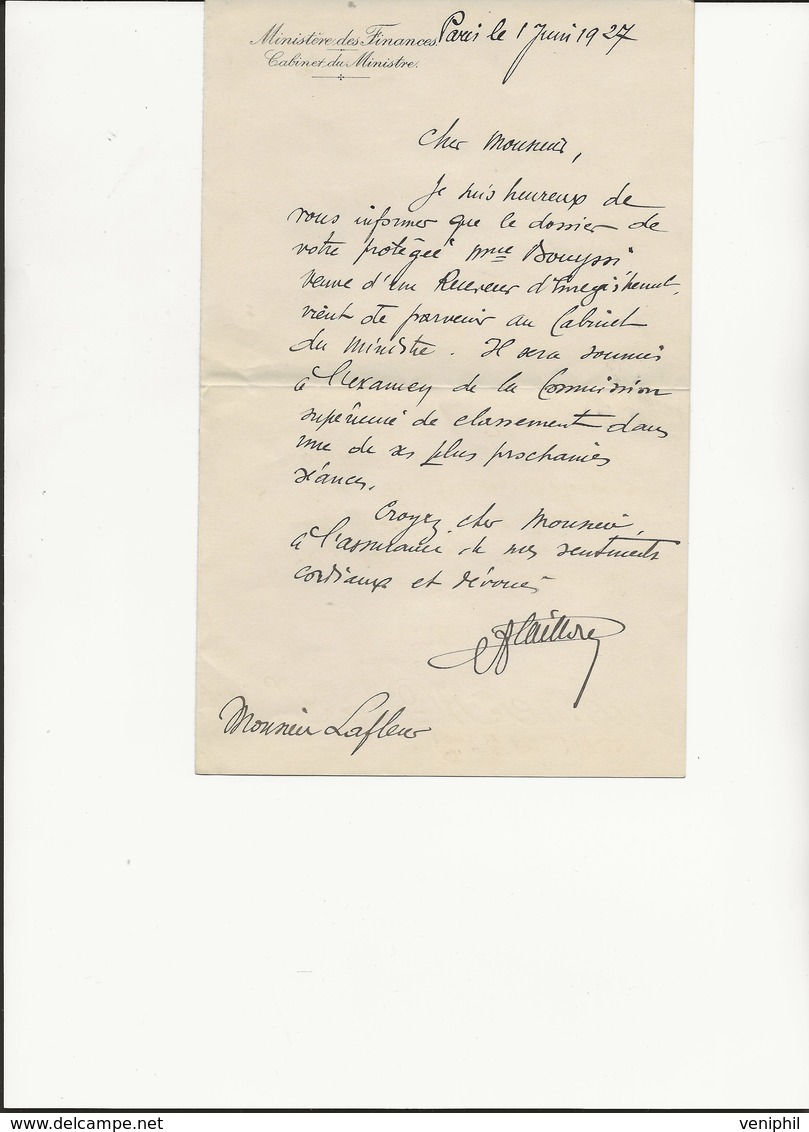 Ministère des Finances
Cabinet du Ministre.
Paris le 1 Juin 1927
Cher Monsieur,
Je suis heureux de
vous informer que le dossier de
votre protégée Mme Bouyssi
veuve d'un Receveur d'Enregistrement,
vient de parvenir au Cabinet
du Ministre. Il sera soumis
à l'examen de la Commission
supérieure de classement dans
une de ses plus prochaines
séances.
Croyez cher Monsieur
à l'assurance de mes sentiments
cordiaux et dévoués
Monsieur Lafleur
www.delcampe.net
veniphil